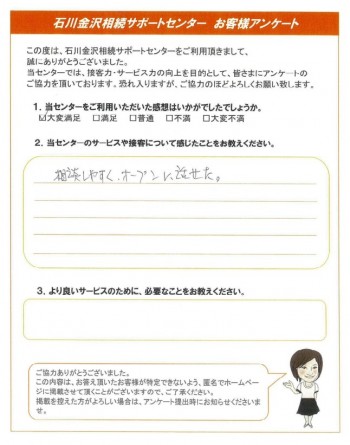 石川金沢相続サポートセンター お客様アンケート
この度は、石川金沢相続サポートセンターをご利用頂きまして、
誠にありがとうございました。
当センターでは、接客力・サービス力の向上を目的として、皆さまにアンケートの
ご協力を頂いております。恐れ入りますが、ご協力のほどよろしくお願い致します。
1. 当センターをご利用いただいた感想はいかがでしたでしょうか。
☑大変満足 □満足 □普通 □不満 □大変不満
2. 当センターのサービスや接客について感じたことをお教えください。
相談しやすく、オープンに話せた。
3. より良いサービスのために、必要なことをお教えください。
ご協力ありがとうございました。
この内容は、お答え頂いたお客様が特定できないよう、匿名でホームペー
ジに掲載させて頂くことがございますので、ご了承ください。
掲載を控えた方がよろしい場合は、アンケート提出時にお知らせくださいま
せ。